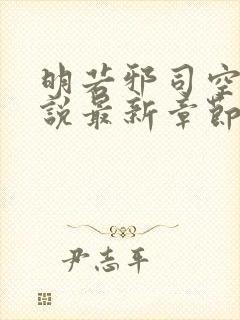 明若邪司空
說最新章節
尹志平